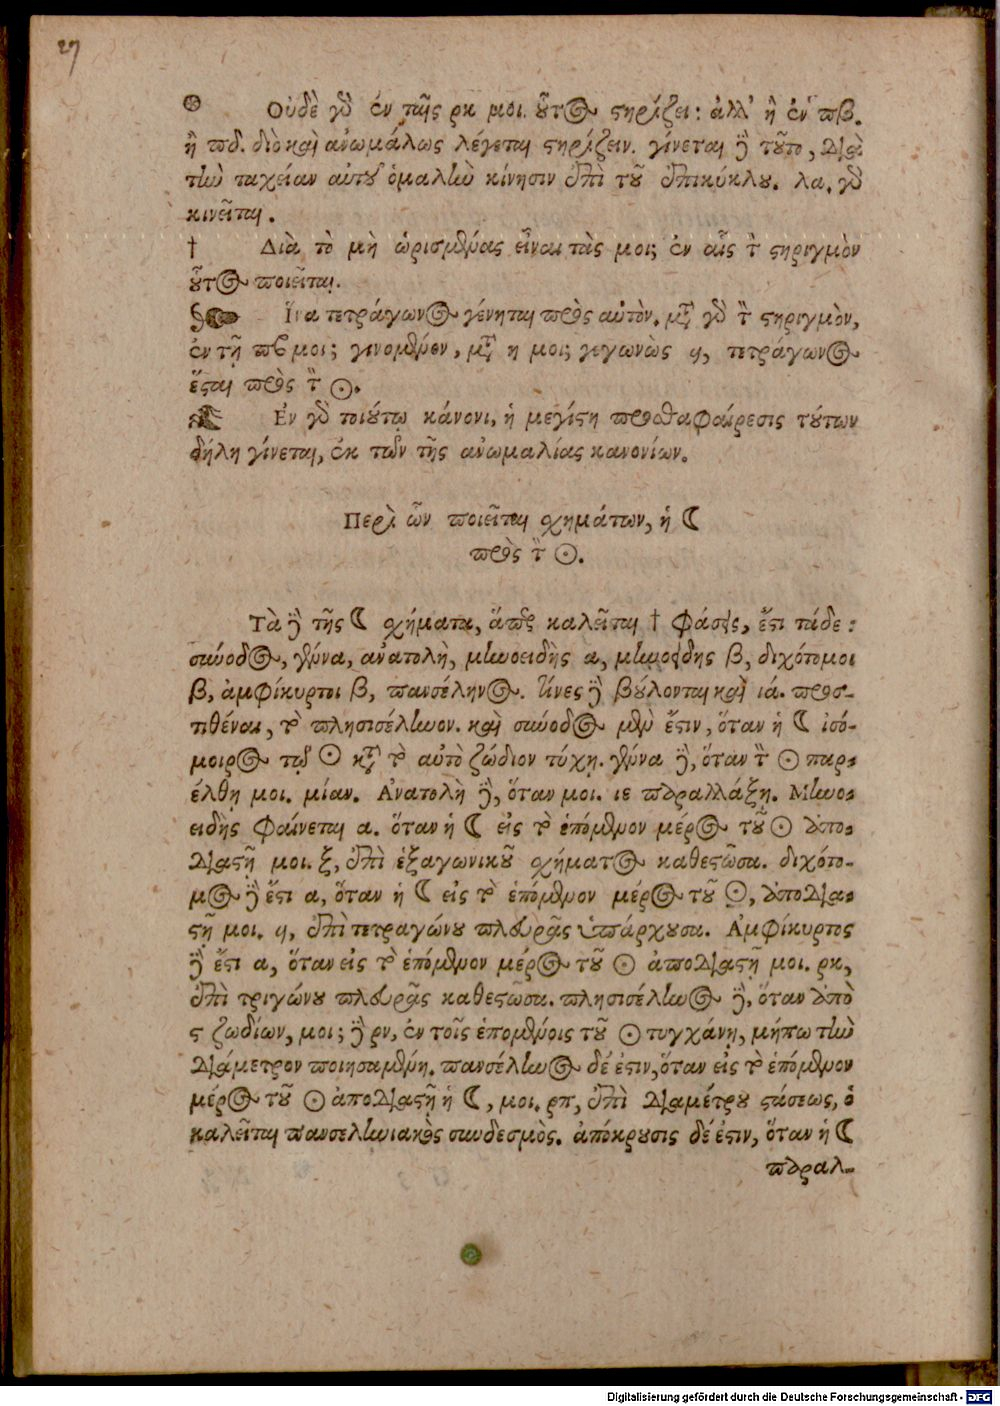 27
⊛ Οὐδὲ γὸ ἐν ταῖς ρκ μοι. οὗτος στηρίζει: ἀλλ' ἢ ἐν πβ.
ἢ πδ. διὸ καὶ ἀνωμάλως λέγεται στηρίζειν. γίνεται ἢ τοῦτο, διὰ
τὴν ταχείαν αὐτοῦ ὁμαλὴν κίνησιν ἐπὶ τοῦ ἐπικύκλου. λα. γὸ
κινεῖται.
† Διὰ τὸ μὴ ὡρισμένας εἶναι τὰς μοι; ἐν αἷς τ̀ στηριγμὸν
οὗτος ποιεῖται.
Ἵνα τετράγωνος γένηται πρὸς αὐτὸν. μτ̀ γὸ τ̀ στηριγμὸν,
ἐν τῇ μοι; γινομένον, μτ̀ η μοι; γεγωνὼς ϟ, τετράγωνος
ἔσται πρὸς τ̀ ☉.
Εν γὸ τοιούτῳ κάνονι, ἡ μεγίστη προσθαφαίρεσις τούτων
δήλη γίνεται, ἐκ τῶν τῆς ἀνωμαλίας κανονίων.
Περὶ ὧν ποιεῖται σχημάτων, ἡ ☾
πρὸς τ̀ ☉.
Τὰ ἢ τῆς ☾ σχήματα, ἅπερ καλεῖται † φάσις, ἔστι τάδε:
σύνοδος, γέννα, ἀνατολὴ, μηνοειδὴς α, μηνοειδης β, διχότομοι
β, ἀμφίκυρτοι β, πανσέληνος. τίνες ἢ βούλονται καὶ ιά. προσ-
τιθέναι, τὸ πλησισέληνον. καὶ σύνοδος μὲν ἔστιν, ὅταν ἡ ☾ ἰσό-
μοιρος τῷ ☉ κτ̀ τὸ αὐτὸ ζώδιον τύχῃ. γέννα ἢ, ὅταν τ̀ ☉ παρ-
έλθῃ μοι. μίαν. Ἀνατολὴ ἢ, ὅταν μοι. ιε παραλλάξῃ. Μηνο-
ειδὴς φαίνεται α. ὅταν ἡ ☾ εἰς τὸ ἑπόμενον μέρος τοῦ ☉ ἀπο-
διαστῇ μοι. ξ, ἐπὶ ἑξαγωνικοῦ σχήματος καθεστῶσα. διχότο-
μος ἢ ἔστι α, ὅταν ἡ ☾ εἰς τὸ ἑπόμενον μέρος τοῦ ☉, ἀποδια-
στῇ μοι. ϟ, ἐπὶ τετραγώνου πλευρᾶς ὑπάρχουσα. Ἀμφίκυρτος
ἢ ἔστι α, ὅταν εἰς τὸ ἑπόμενον μέρος τοῦ ☉ ἀποδιαστῇ μοι. ρκ,
ἐπὶ τριγώνου πλευρᾶς καθεστῶσα. πλησισέληνος ἢ, ὅταν ἀπὸ
ς ζωδίων, μοι; ἢ ρν, ἐν τοῖς ἑπομένοις τοῦ ☉ τυγχάνῃ, μήπω τὴν
διάμετρον ποιησαμένη. πανσέληνος δέ ἐστιν, ὅταν εἰς τὸ ἑπόμενον
μέρος τοῦ ☉ ἀποδιαστῇ ἡ ☾, μοι. ρπ, ἐπὶ διαμέτρου στάσεως, ὁ
καλεῖται πανσεληνιακὸς συνδεσμὸς. ἀπόκρουσις δέ ἐστιν, ὅταν ἡ ☾
παραλ-
Digitalisierung gefördert durch die Deutsche Forschungsgemeinschaft - DFG